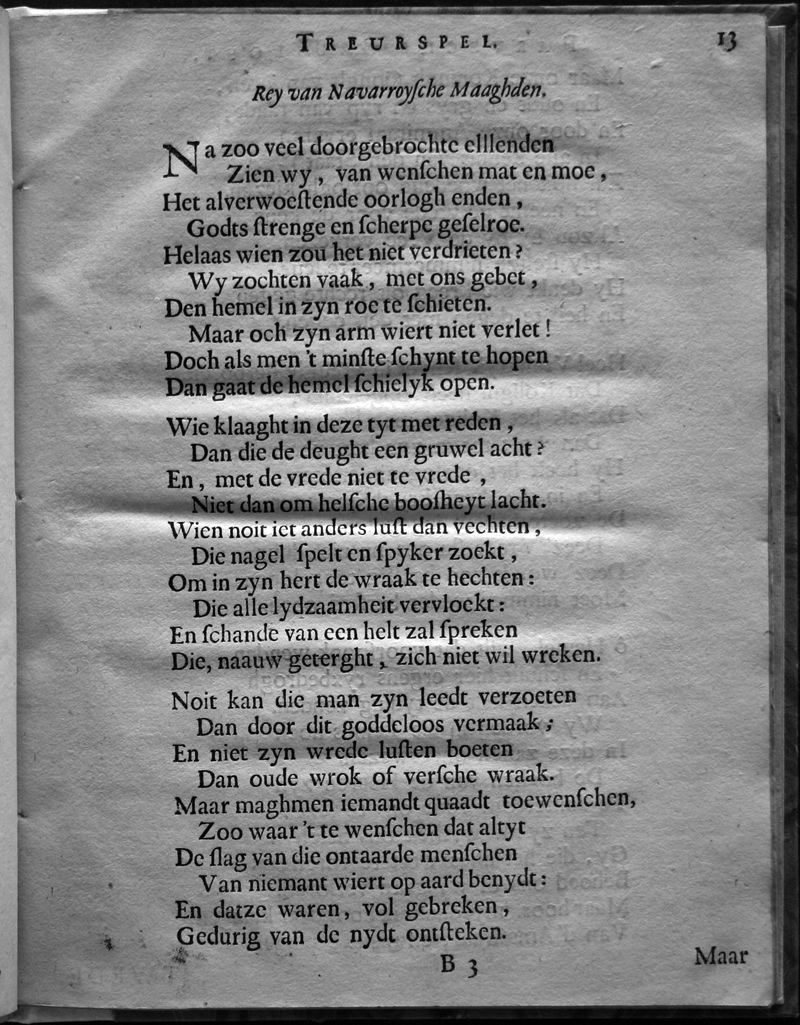 TREURSPEL. 13
Rey van Navarroyſche Maaghden.
Na zoo veel doorgebrochte elllenden
Zien wy, van wenſchen mat en moe,
Het alverwoeſtende oorlogh enden,
Godts ſtrenge en ſcherpe geſelroe.
Helaas wien zou het niet verdrieten?
Wy zochten vaak, met ons gebet,
Den hemel in zyn roe te ſchieten.
Maar och zyn arm wiert niet verlet!
Doch als men 't minſte ſchynt te hopen
Dan gaat de hemel ſchielyk open.
Wie klaaght in deze tyt met reden,
Dan die de deught een gruwel acht?
En, met de vrede niet te vrede,
Niet dan om helſche booſheyt lacht.
Wien noit iet anders luſt dan vechten,
Die nagel ſpelt en ſpyker zoekt,
Om in zyn hert de wraak te hechten:
Die alle lydzaamheit vervloekt:
En ſchande van een helt zal ſpreken
Die, naauw geterght, zich niet wil wreken.
Noit kan die man zyn leedt verzoeten
Dan door dit goddeloos vermaak;
En niet zyn wrede luſten boeten
Dan oude wrok of verſche wraak.
Maar maghmen iemandt quaadt toewenſchen,
Zoo waar 't te wenſchen dat altyt
De ſlag van die ontaarde menſchen
Van niemant wiert op aard benydt:
En datze waren, vol gebreken,
Gedurig van de nydt ontſteken.
B 3 Maar